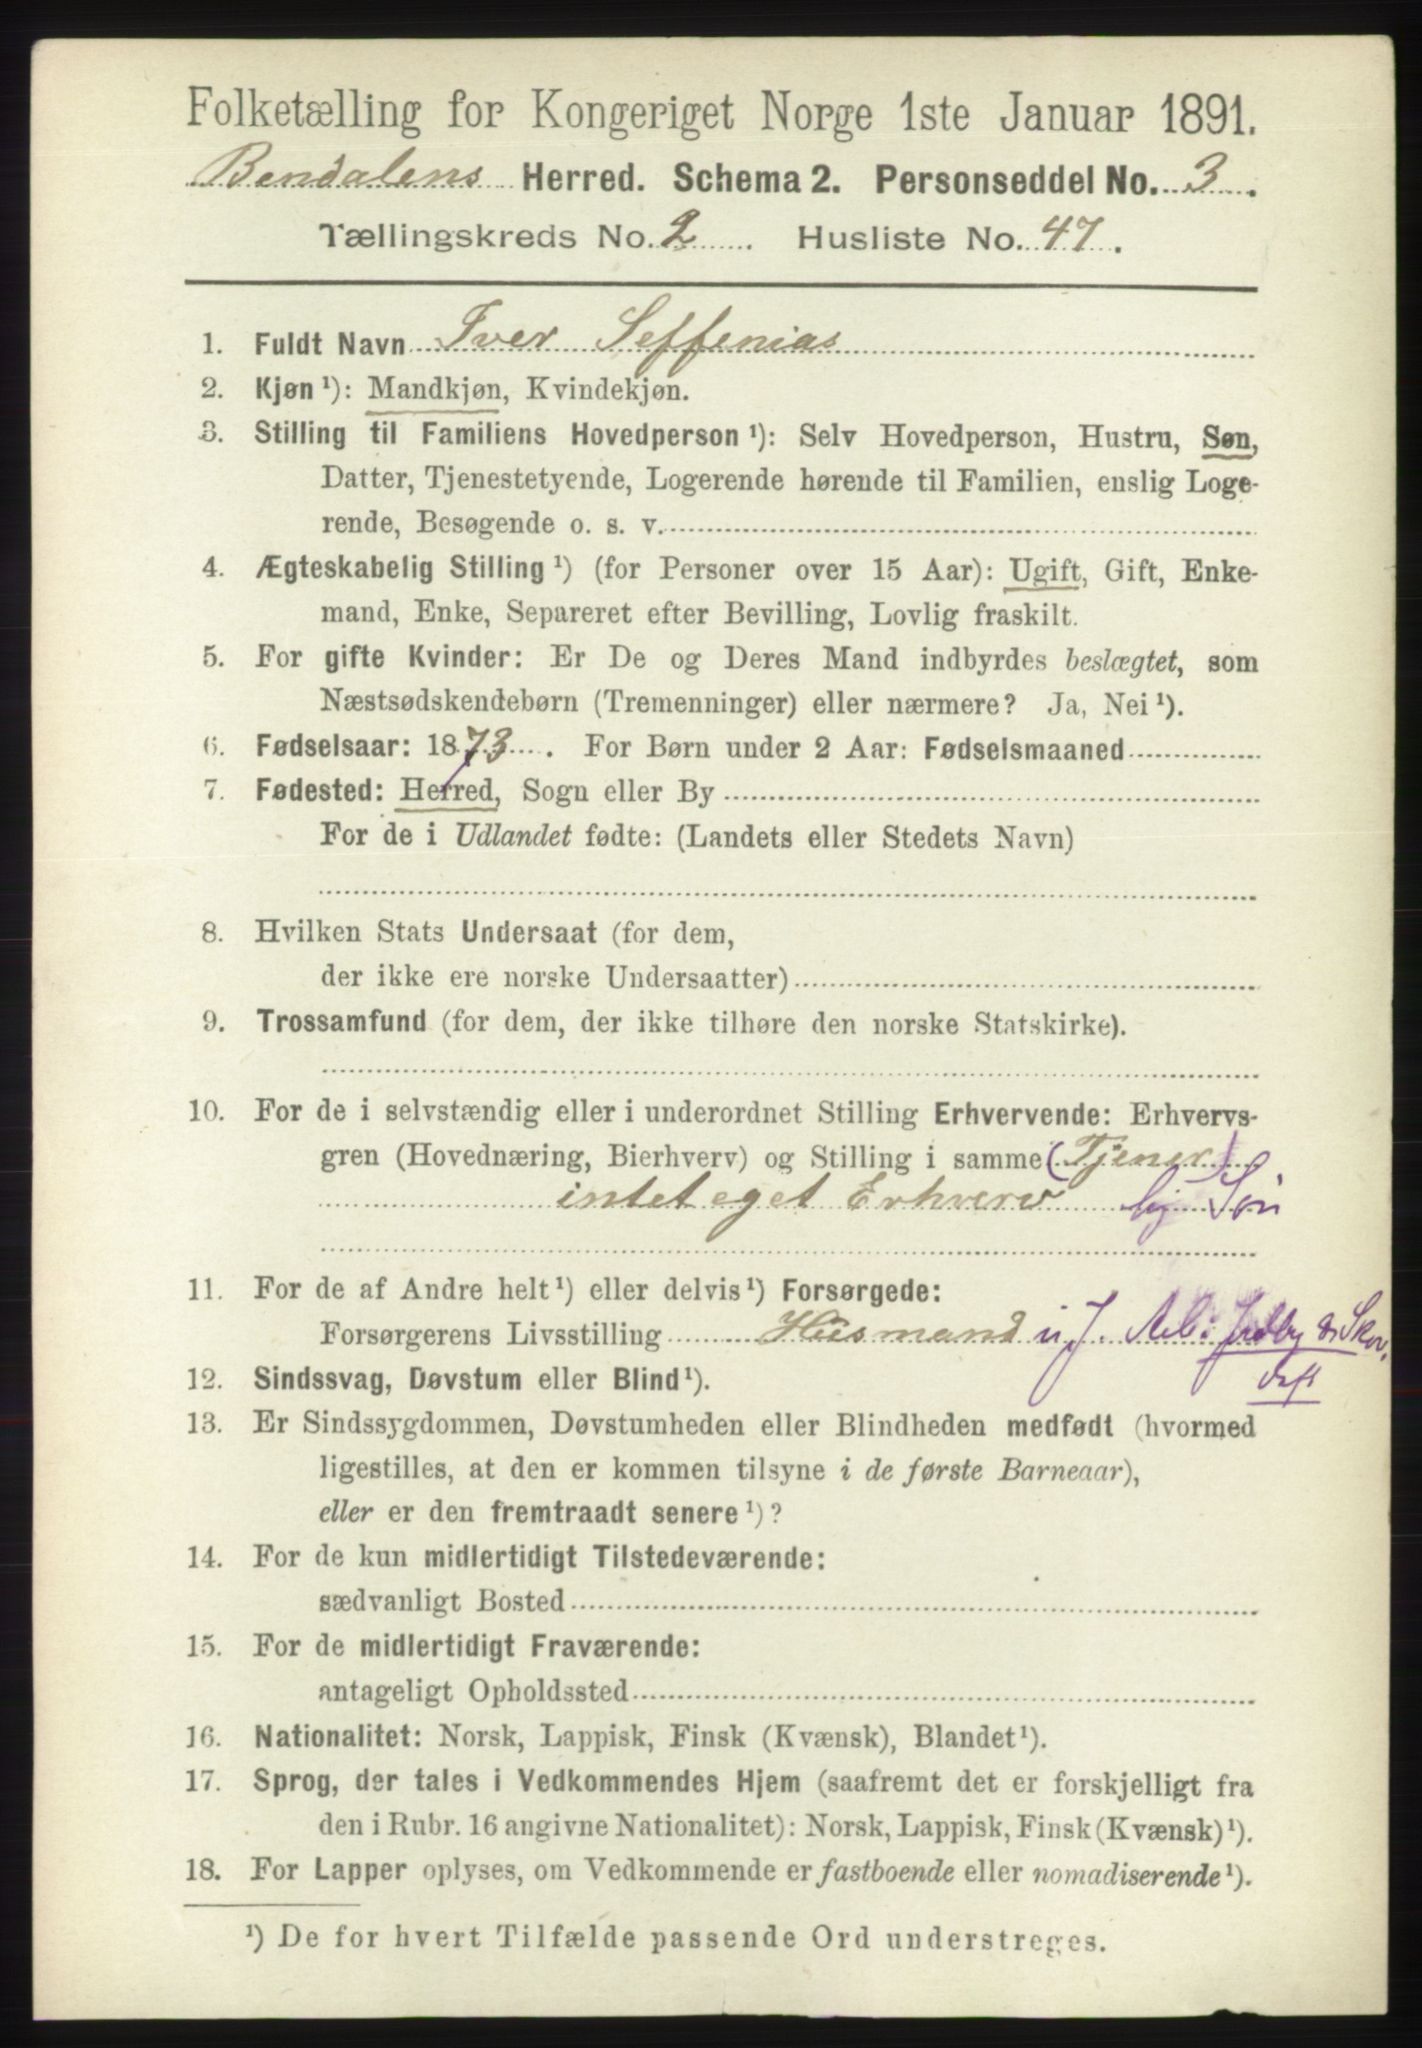 Folketælling for Kongeriget Norge 1ste Januar 1891.
Bendalens Herred. Schema 2. Personseddel No. 3.
Tællingskreds No. 2. Husliste No. 47.
1. Fuldt Navn Iver Seffenias
2. Kjøn ¹): Mandkjøn, Kvindekjøn.
3. Stilling til Familiens Hovedperson ¹): Selv Hovedperson, Hustru, Søn,
Datter, Tjenestetyende, Logerende hørende til Familien, enslig Loge-
rende, Besøgende o. s. v.
4. Ægteskabelig Stilling ¹) (for Personer over 15 Aar): Ugift, Gift, Enke-
mand, Enke, Separeret efter Bevilling, Lovlig fraskilt.
5. For gifte Kvinder: Er De og Deres Mand indbyrdes beslægtet, som
Næstsødskendebørn (Tremenninger) eller nærmere? Ja, Nei ¹).
6. Fødselsaar: 1873. For Børn under 2 Aar: Fødselsmaaned
7. Fødested: Herred, Sogn eller By
For de i Udlandet fødte: (Landets eller Stedets Navn)
8. Hvilken Stats Undersaat (for dem,
der ikke ere norske Undersaatter)
9. Trossamfund (for dem, der ikke tilhøre den norske Statskirke).
10. For de i selvstændig eller i underordnet Stilling Erhvervende: Erhvervs-
gren (Hovednæring, Bierhverv) og Stilling i samme (Tjener)
intet eget Erhverv hj. Søn
11. For de af Andre helt ¹) eller delvis ¹) Forsørgede:
Forsørgerens Livsstilling Husmand u J. Arb: Jordby & Skov.
drft
12. Sindssvag, Døvstum eller Blind ¹).
13. Er Sindssygdommen, Døvstumheden eller Blindheden medfødt (hvormed
ligestilles, at den er kommen tilsyne i de første Barneaar),
eller er den fremtraadt senere ¹)?
14. For de kun midlertidigt Tilstedeværende:
sædvanligt Bosted
15. For de midlertidigt Fraværende:
antageligt Opholdssted
16. Nationalitet: Norsk, Lappisk, Finsk (Kvænsk), Blandet ¹).
17. Sprog, der tales i Vedkommendes Hjem (saafremt det er forskjelligt fra
den i Rubr. 16 angivne Nationalitet): Norsk, Lappisk, Finsk (Kvænsk) ¹).
18. For Lapper oplyses, om Vedkommende er fastboende eller nomadiserende ¹).
¹) De for hvert Tilfælde passende Ord understreges.